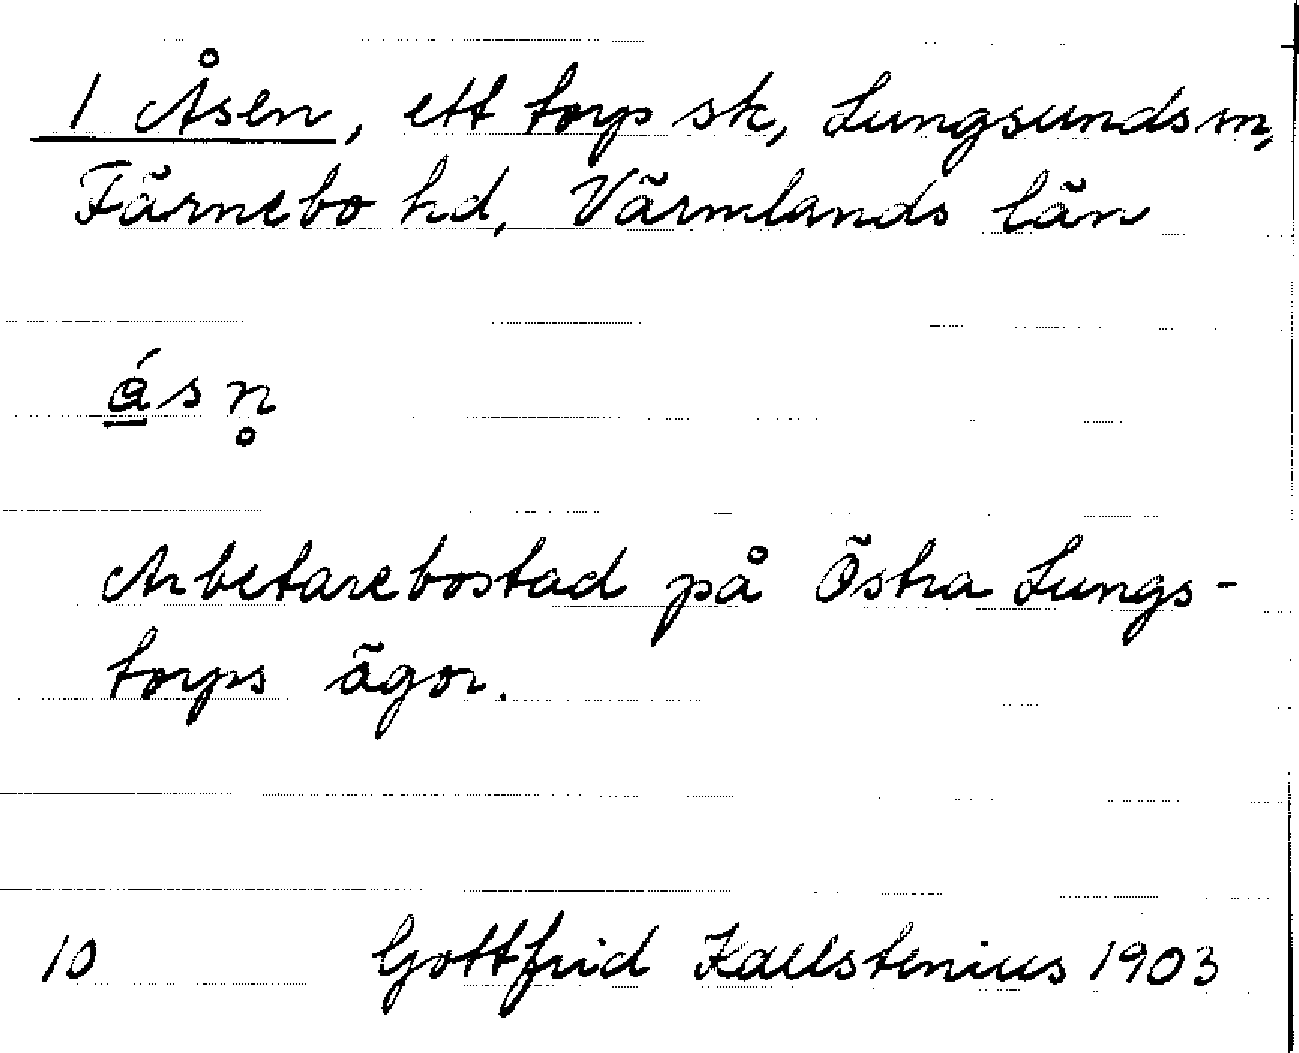 1 Åsen, ett torp sk, Lungsunds sn,
Färnebo hd, Värmlands län
ásn̥
Arbetarebostad på Östra Lungs-
torps ägor.
10 Gottfrid Kallstenius 1903